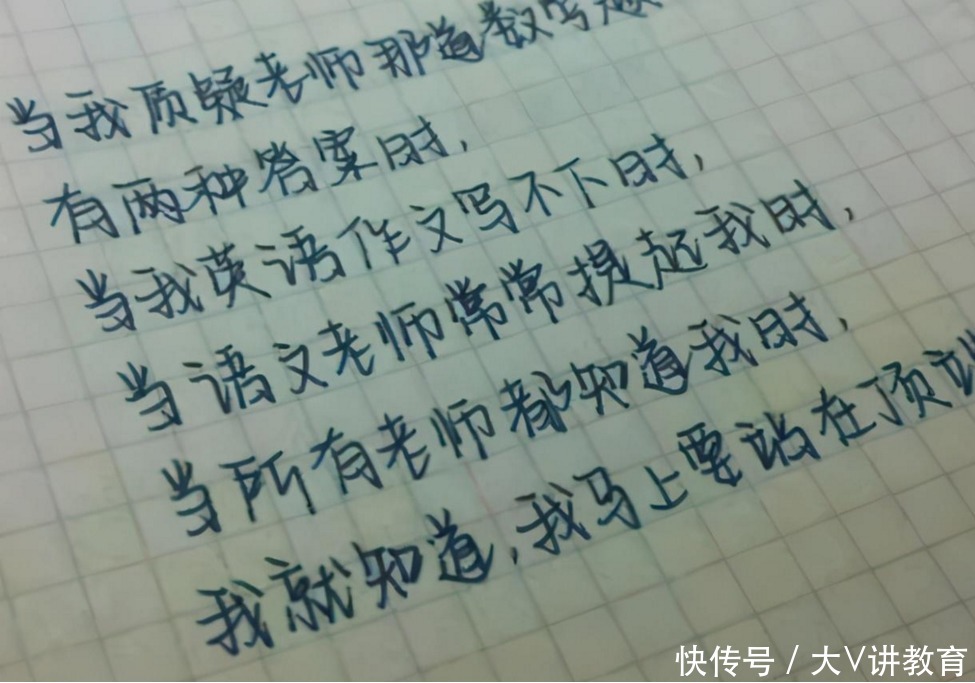 当我质疑老师那道数学题
有两种答案时，
当我英语作文写不下时，
当语文老师常常提起我时，
当所有老师都知道我时，
我就知道，我马上要站在顶端
快传号 / 大V讲教育